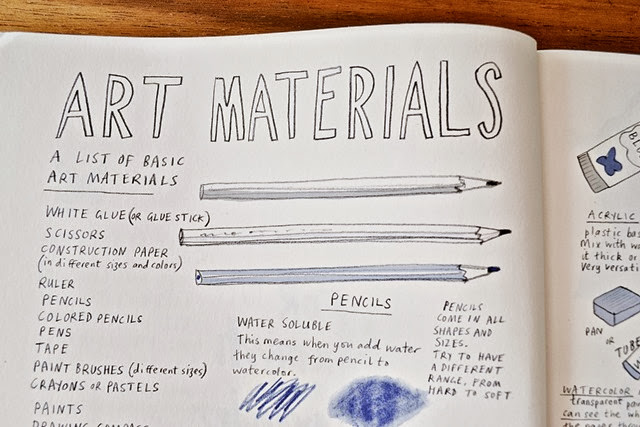 ART MATERIALS
A LIST OF BASIC
ART MATERIALS
WHITE GLUE (OR GLUE STICK)
SCISSORS
CONSTRUCTION PAPER
(in different sizes and colors)
RULER
PENCILS
COLORED PENCILS
PENS
TAPE
PAINT BRUSHES (different sizes)
CRAYONS OR PASTELS
PAINTS
DRAWING COMPASS
PENCILS
WATER SOLUBLE
This means when you add water
they change from pencil to
watercolor.
PENCILS
COME IN ALL
SHAPES AND
SIZES.
TRY TO HAVE
A DIFFERENT
RANGE, FROM
HARD TO SOFT
ACRYLIC
plastic bas
Mix with w
it thick or
Very versati
PAN
OR
TUBE
WATERCOLOR
transparent
can see the wh